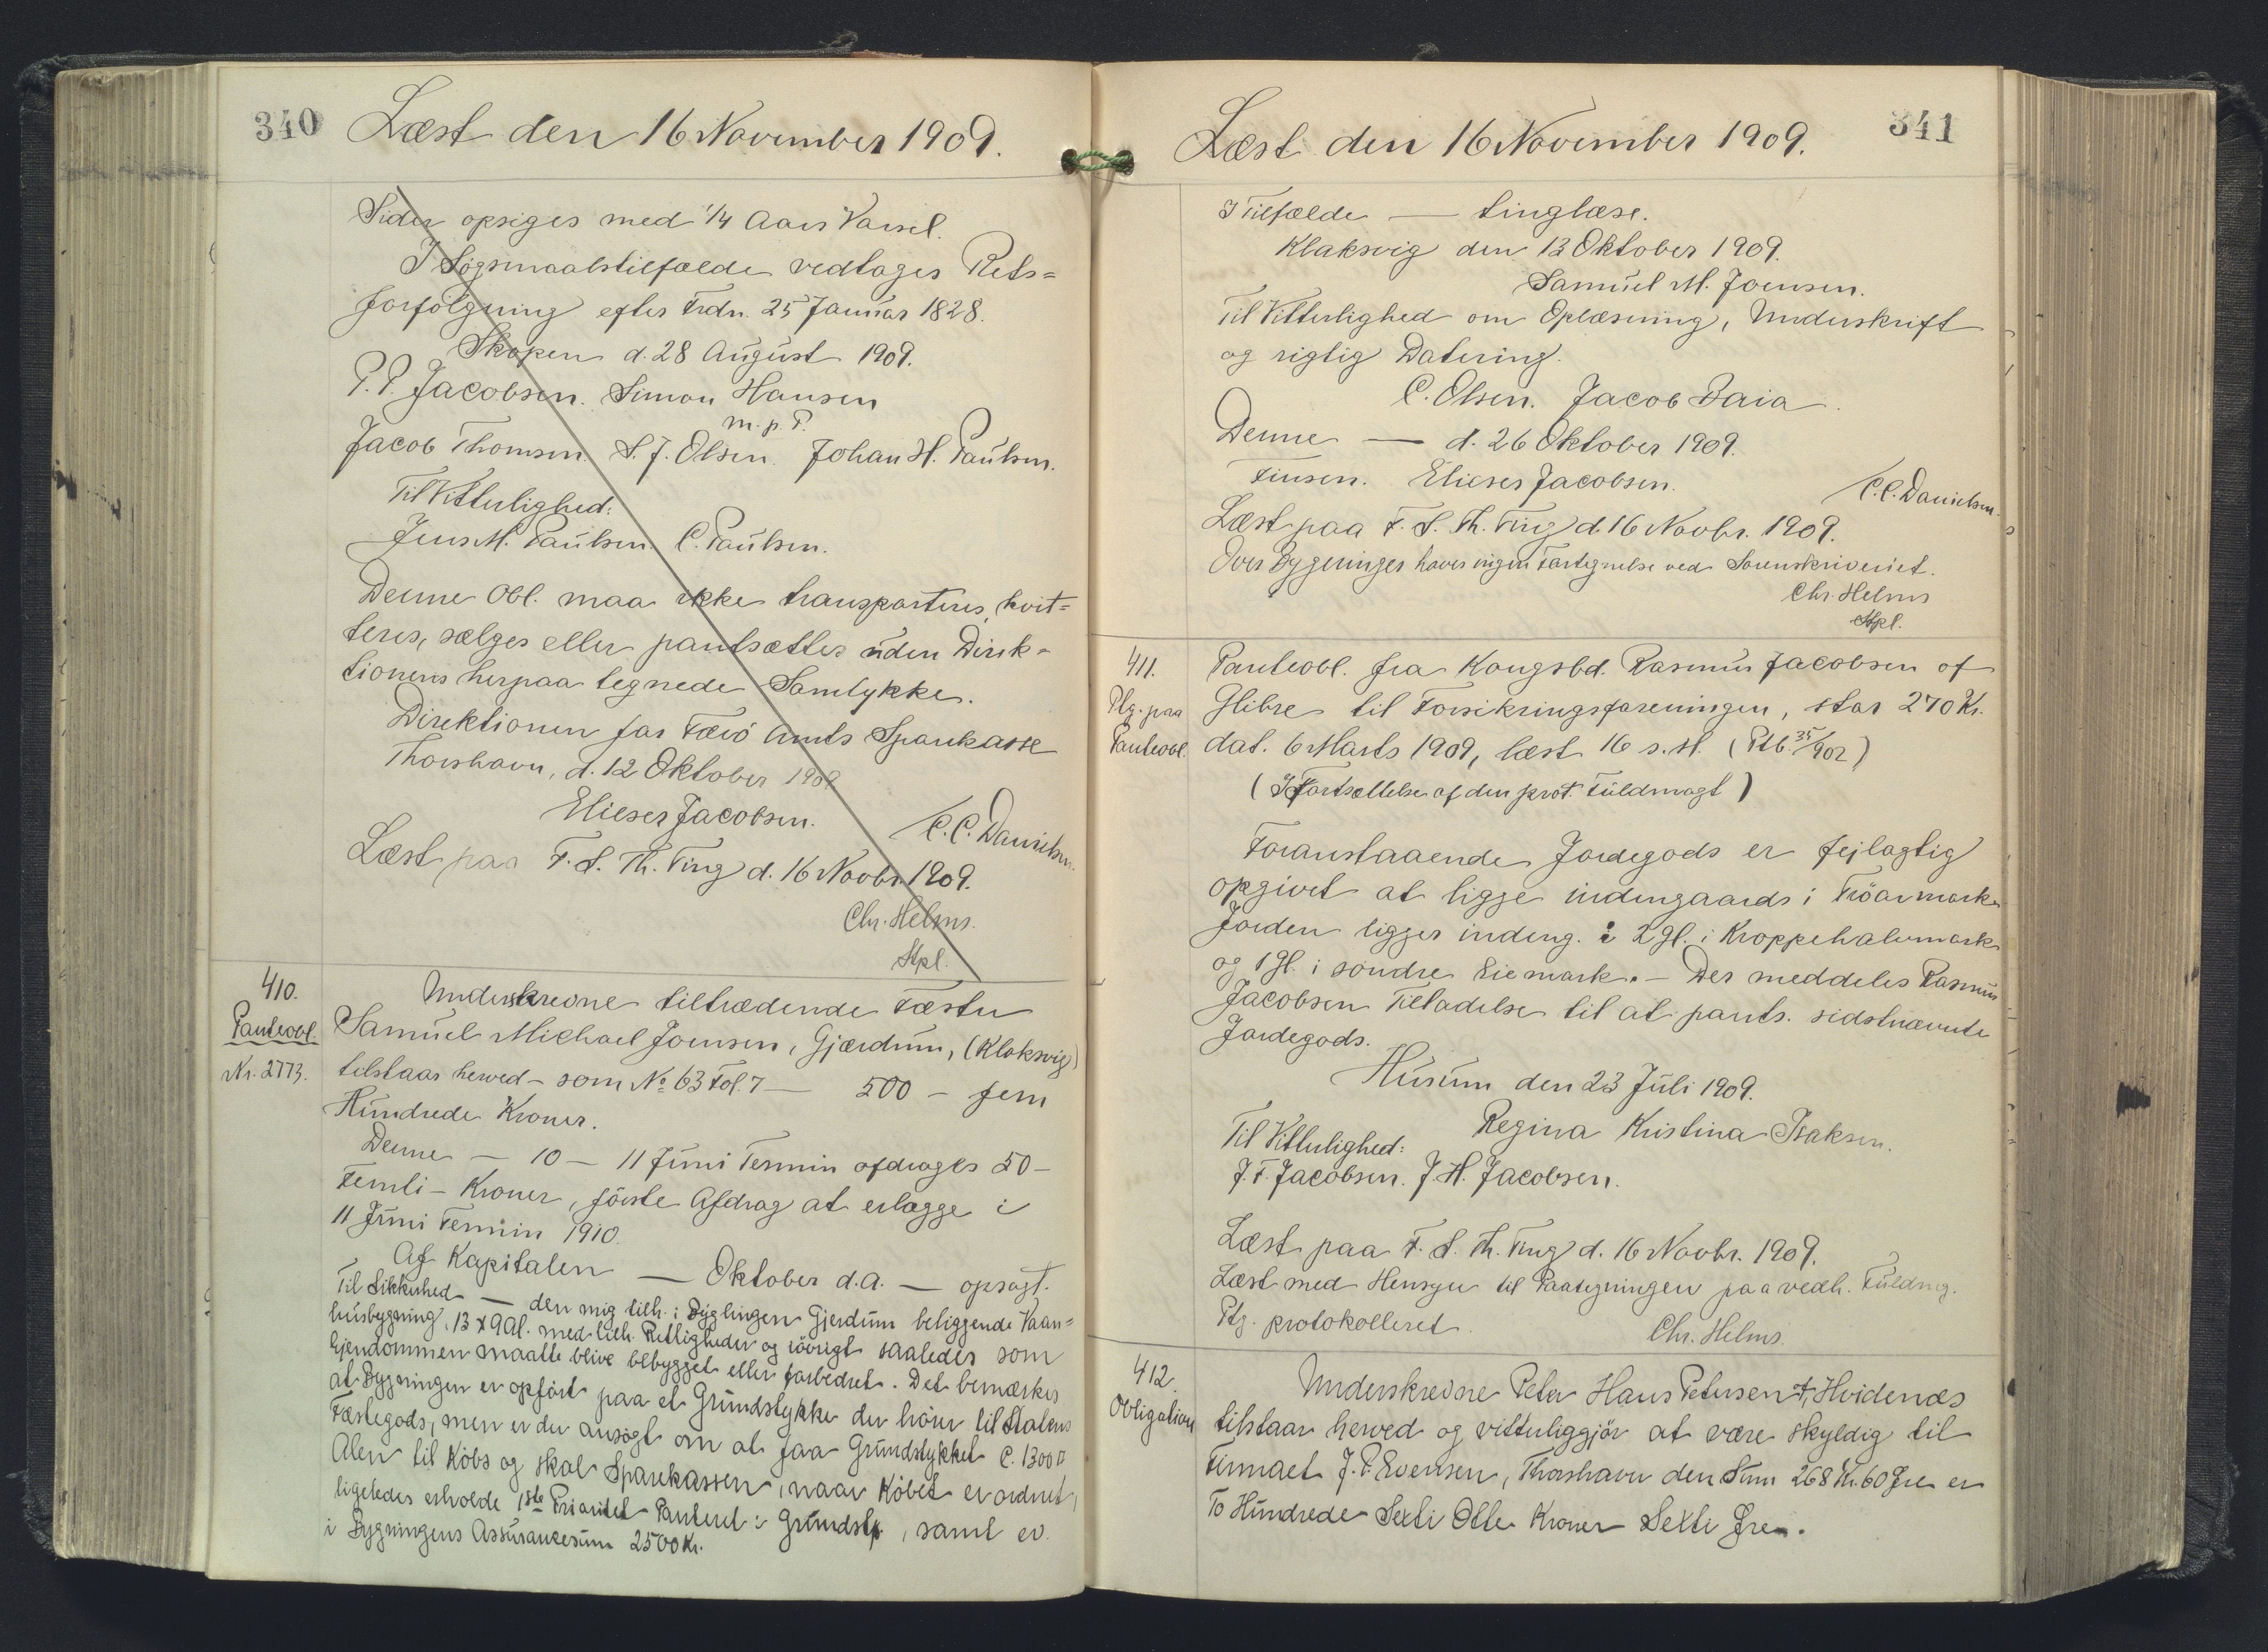 340
Læst den 16 November 1909.
Sider opsiges med 1/4 Aars Varsel.
I Søgsmaalstilfælde vedtages Rets=
forfølgning efter Frdn. 25 Januar 1828.
Skopen d. 28 August 1909.
P. P. Jacobsen. Simon Hansen
m. p. P.
Jacob Thomsen. S. J. Olsen. Johan H. Paulsen.
Til Vitterlighed:
Jens M. Paulsen. C. Paulsen.
Denne Obl. maa ikke transporteres, kvit=
teres, sælges eller pantsættes uden Direk=
tionens herpaa tegnede Samtykke.
Direktionen for Færø Amts Sparekasse
Thorshavn, d. 12 Oktober 1909
Elieser Jacobsen.
C. C. Danielsen.
Læst paa F. S. Th. Ting d. 16 Novbr. 1909.
Chr. Helms.
Stpl.
410.
Panteobl.
Nr. 2773.
Underskrevne tiltrædende Fæster
Samuel Michael Joensen, Gjærdum, (Klaksvig)
tilstaar herved – som № 63 Fol. 7 – 500 – fem
Hundrede Kroner.
Denne – 10 – 11 Juni Termin afdrages 50 –
Femti – Kroner, første Afdrag at erlægge i
11 Juni Termin 1910.
Af Kapitalen — Oktober d.A. — opsagt.
Til Sikkerhed — den mig tilh. i Bygslingen Gjerdum beliggende Vaan=
husbygning, 13 x 9 Al. med tilh. Rettigheder og iøvrigt saaledes som
Ejendommen maatte blive bebygget eller forbedret. Det bemærkes
at Bygningen er opført paa et Grundstykke der hører til Statens
Fæstegods, men er der ansøgt om at faa Grundstykket c. 1300 □
Alen til Købs og skal Sparekassen, naar Købet er ordnet,
ligeledes erholde 1ste Prioritets Panteret i Grundst., samt ev.
i Bygningens Assurancesum 2500 Kr.
341
Læst den 16 November 1909.
I Tilfælde — tinglæse.
Klaksvig den 13 Oktober 1909.
Samuel M. Joensen.
Til Vitterlighed om Oplæsning, Underskrift
og rigtig Datering.
C. Olsen. Jacob Baia.
Denne — d. 26 Oktober 1909.
Finsen. Elieser Jacobsen.
C. C. Danielsen.
Læst paa F. S. Th. Ting d. 16 Novbr. 1909.
Over Bygninger haves ingen Fortegnelse ved Sorenskriveriet.
Chr. Helms
Stpl.
411.
Ptg. paa
Panteobl.
Panteobl. fra Kongsbd. Rasmus Jacobsen af
Glibre til Forsikringsforeningen, stor 270 Kr.
dat. 6 Marts 1909, læst 16 s. M. (Ptb. 35/902)
(I Fortsættelse af den prot. Fuldmagt)
Foranstaaende Jordegods er fejlagtig
opgivet at ligge indengaards i Trøarmark.
Jorden ligger indeng. i 2 gl. i Kroppehalvmark
og 1 gl. i søndre Liemark. – Der meddeles Rasmus
Jacobsen Tilladelse til at pants. sidstnævnte
Jordegods.
Husum den 23 Juli 1909.
Regina Kristina Isaksen.
Til Vitterlighed:
J. F. Jacobsen. J. H. Jacobsen.
Læst paa F. S. Th. Ting d. 16 Novbr. 1909.
Læst med Hensyn til Paategningen paa vedh. Fuldmg.
Ptg. protokolleret.
Chr. Helms.
412.
Obligation
Underskrevne Peter Hans Petersen, Hvidenæs
tilstaar herved og vitterliggjør at være skyldig til
Firmaet J. P. Evensen, Thorshavn den Sum 268 Kr. 60 Øre er
To Hundrede Sexti Otte Kroner Sexti Øre.